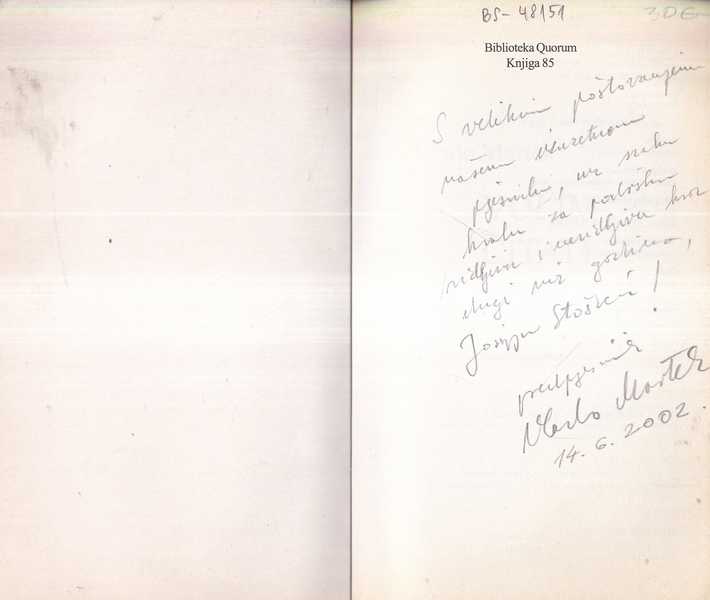 BS-48151
30E
Biblioteka Quorum
Knjiga 85
S velikim poštovanjem
našem izuzetnom
pjesniku, uz svaku
hvalu za podršku
vidljivu i nevidljivu kroz
dugi niz godina,
Josipu Stošiću!
predpjesnik
Vlado Martek
14. 6. 2002.